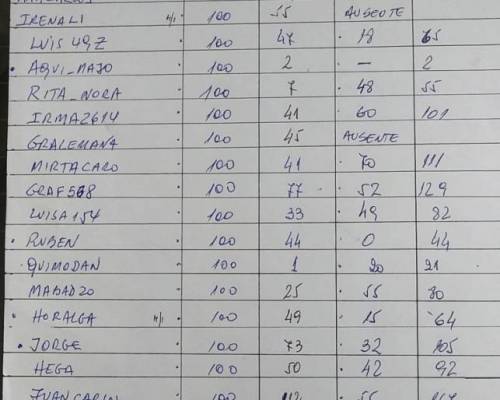 IRENALI H/I 100 55 AUSENTE
LUIS 49,Z 100 47 18 65
AQUI_MAJO 100 2 — 2
RITA_NORA 100 7 48 55
IRMA2614 100 41 60 101
GRALEMANA 100 45 AUSENTE
MIRTACARO 100 41 70 111
GRAF568 100 77 52 129
LUISA154 100 33 49 82
RUBEN 100 44 0 44
QUIMODAN 100 1 20 21
MABADZO 100 25 55 80
HORALGA H/I 100 49 15 64
JORGE 100 73 32 105
HEGA 100 50 42 92
100 112 55